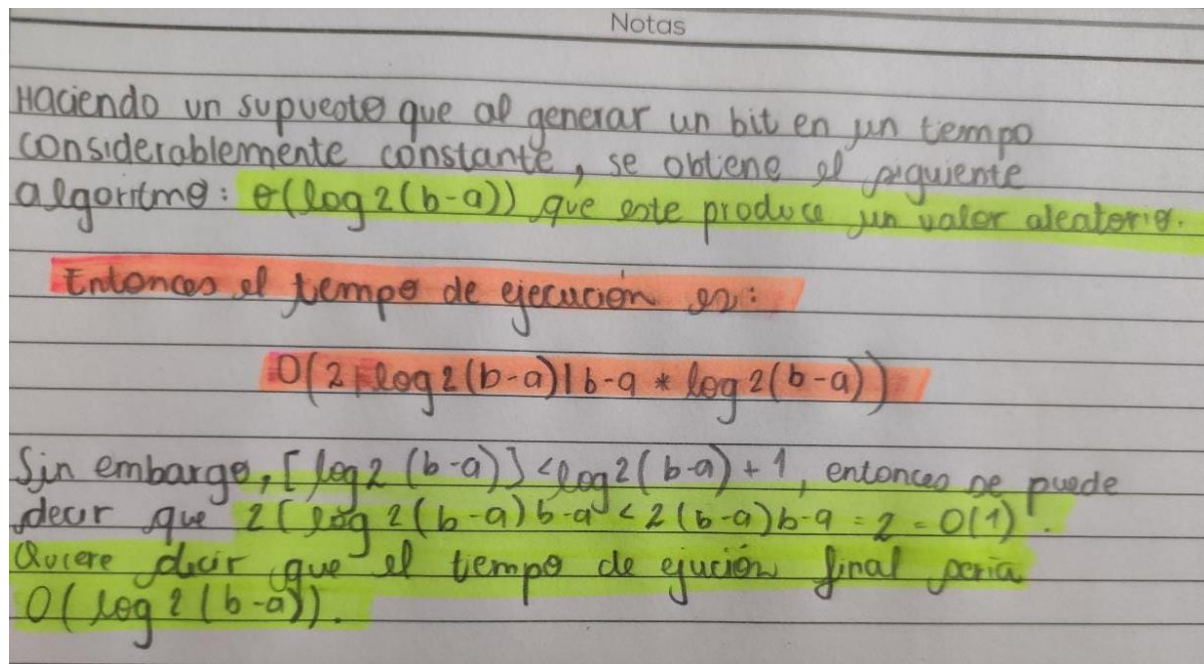 Notas
Haciendo un supuesto que al generar un bit en un tiempo
considerablemente constante, se obtiene el siguiente
algoritmo: θ(log2(b-a)) que este produce un valor aleatorio.
Entonces el tiempo de ejecución es:
O(2⌈log2(b-a)|b-a * log2(b-a))
Sin embargo, ⌈log2(b-a)⌉<log2(b-a)+1, entonces se puede
decir que 2⌈log2(b-a)b-a<2(b-a)b-a=2=O(1).
Quiere decir que el tiempo de ejución final seria
O(log2(b-a)).